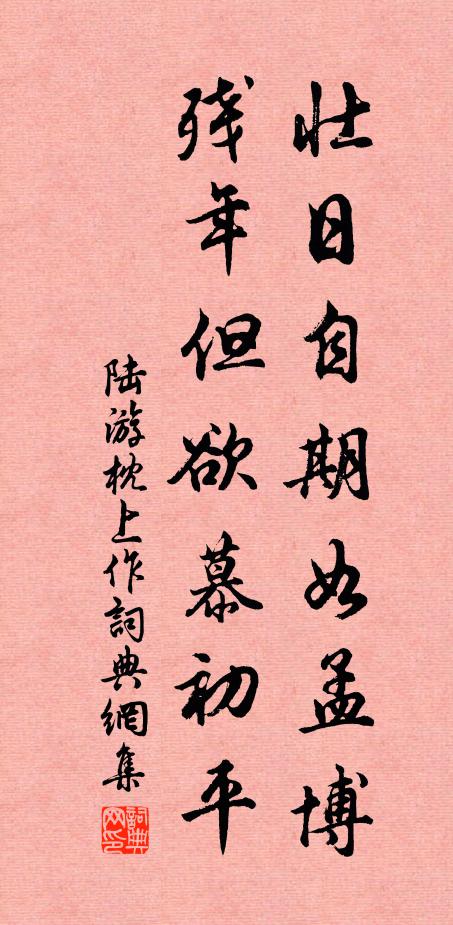 壮日自期如孟博
残年但欲慕初平
陆游枕上作詞典網集
詞典网印